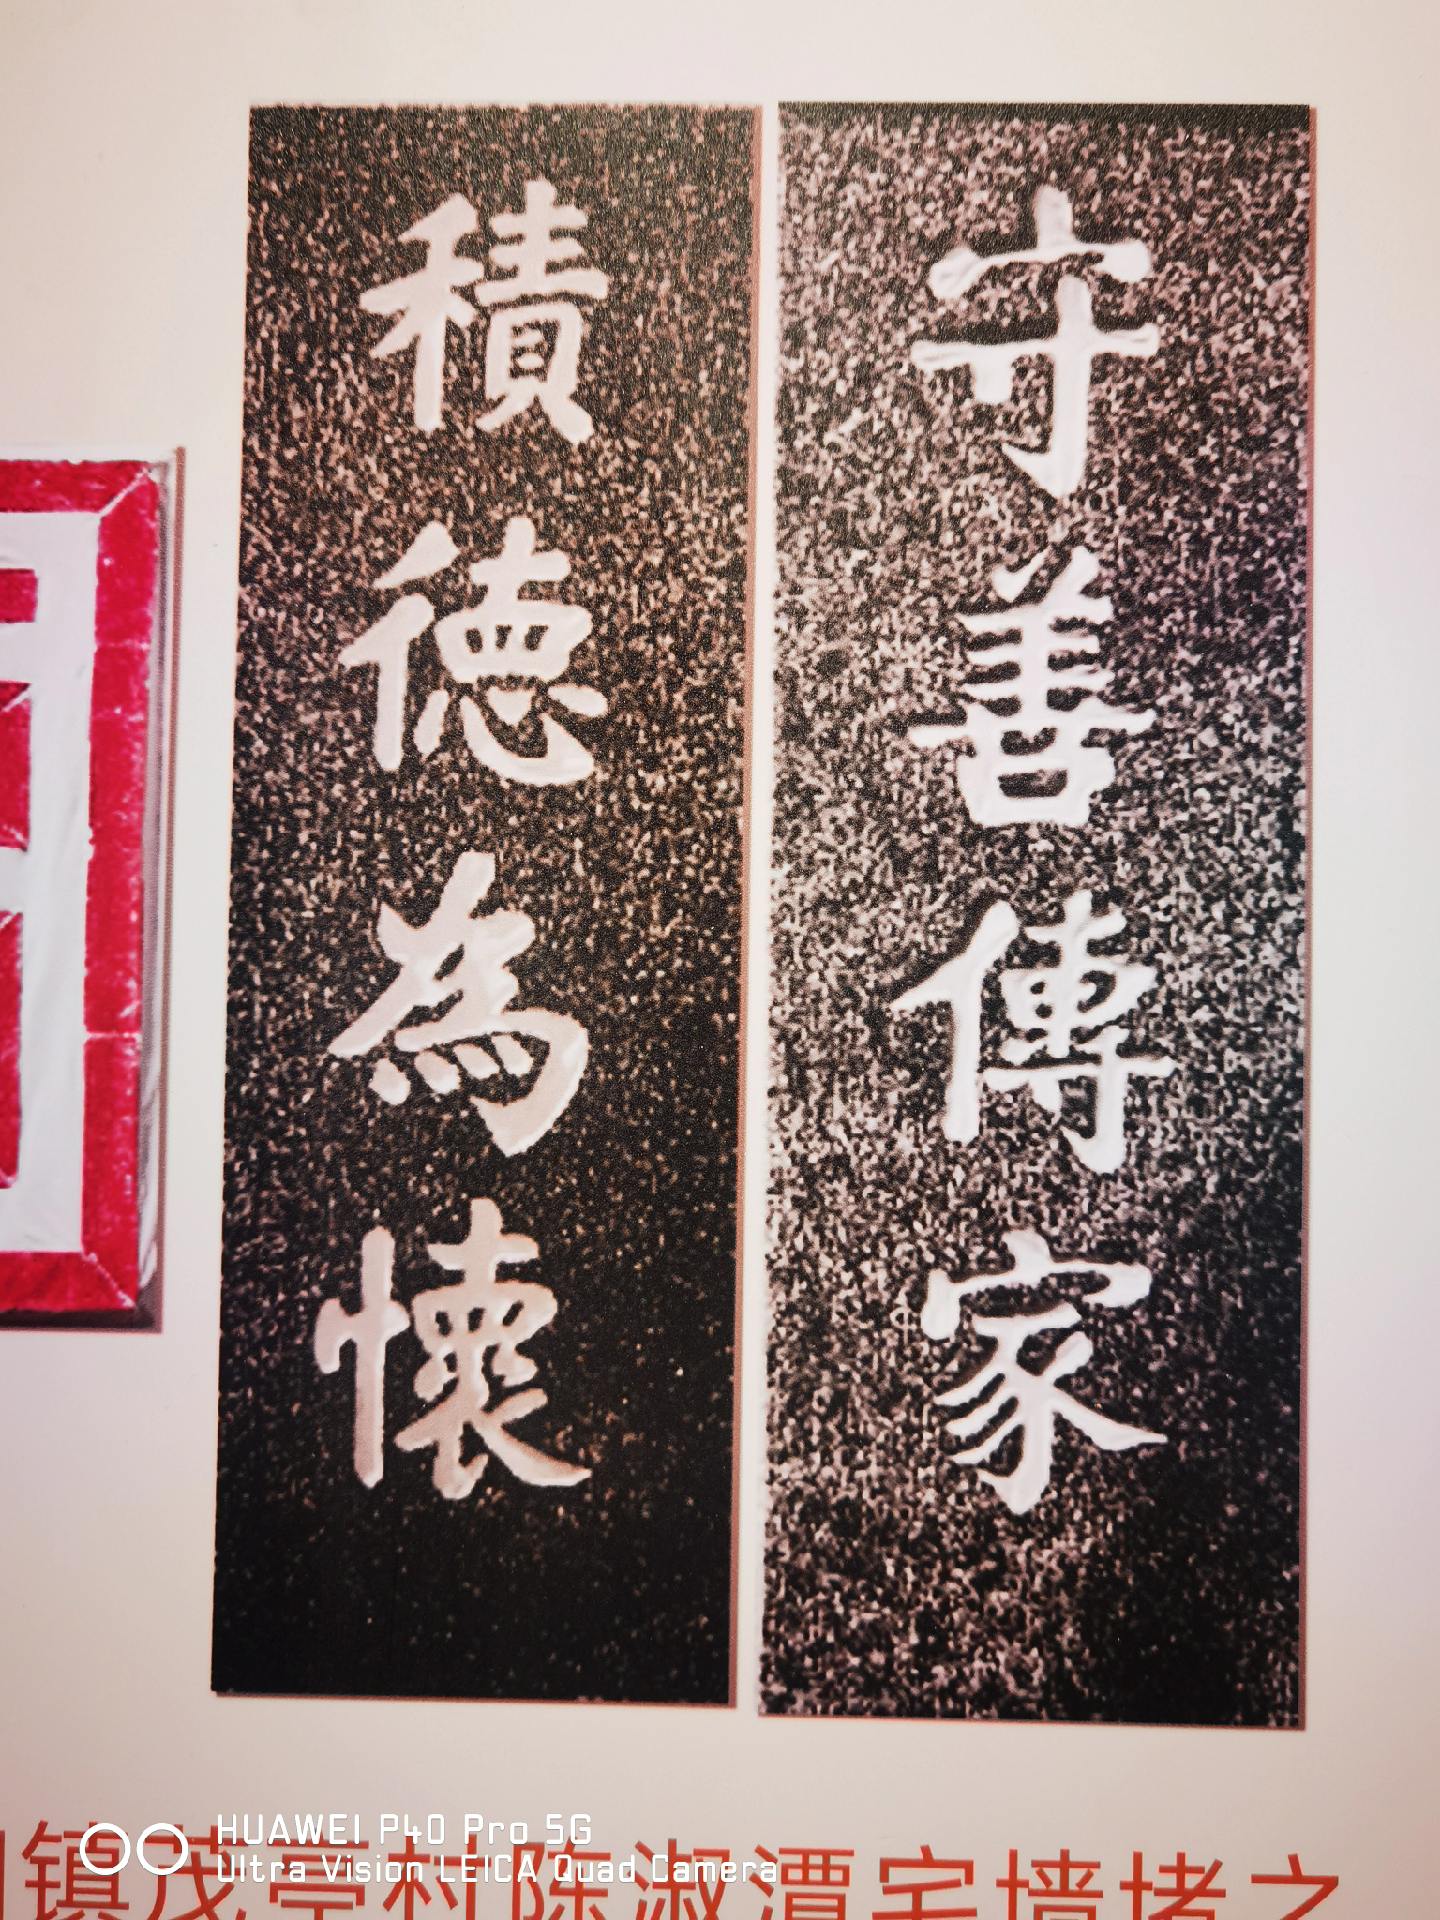 守善傳家
積德為懷
镇茂亭村陈淑潭宅墙堵之
HUAWEI P40 Pro 5G
Ultra Vision LEICA Quad Camera